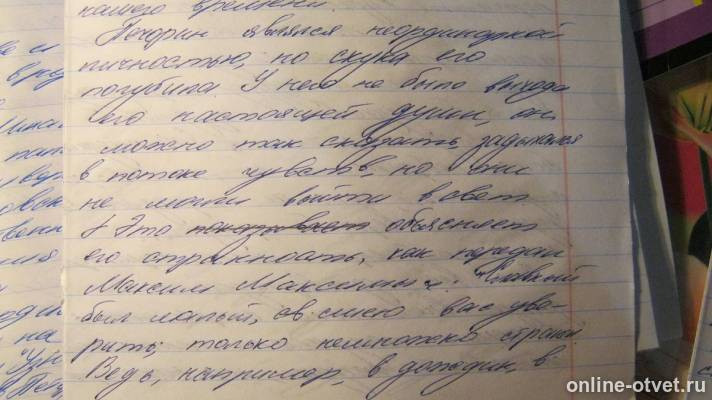 нашего времени.
Печорин являлся неординарной
личностью, но скука его
погубила. У него не было выхода
его настоящей души, он
можно так сказать, задыхался
в потоке чувств, но они
не могли выйти в свет
Это показывает объясняет
его странность, как передал
Максим Максимыч: "Славный
был малый, смею вас уве-
рить; только немножко странен
Ведь, например, в дождик, в
online-otvet.ru